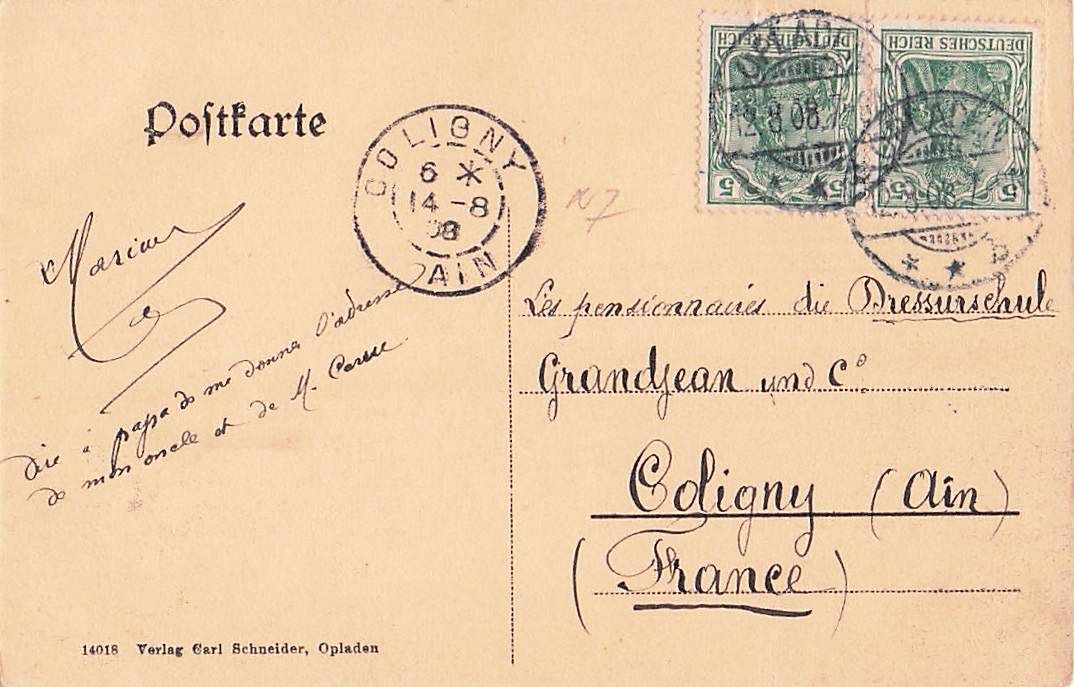 Postkarte
DEUTSCHES REICH
5
DEUTSCHES REICH
5
OPLADEN
12.8.08.
OPLADEN
12.8.08.
COLIGNY
6 *
14-8
08
AIN
Les pensionnaires die Dressurschule
Grandjean und Cº
Coligny (Ain)
(France)
dire à papa de me donner l'adresse
de mon oncle et de M.
14018 Verlag Carl Schneider, Opladen